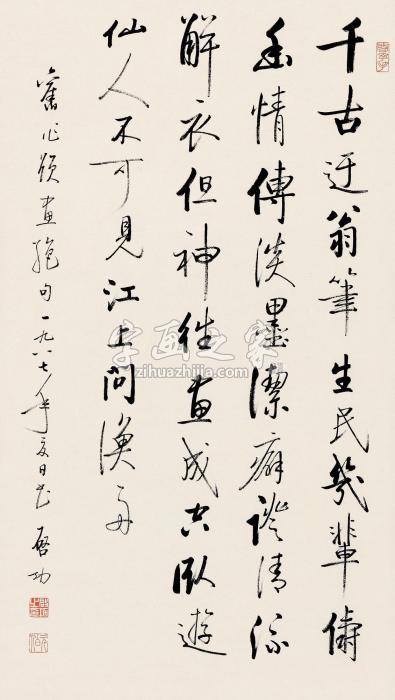 千古迂翁筆生民幾輩儔
幽情傳淡墨潔癖證清流
解衣但神往畫成臥遊
仙人不可見江上問漁舟
舊作題畫絕句一九八七年夏日書 啓功
字画之家
zihuazhijia.com